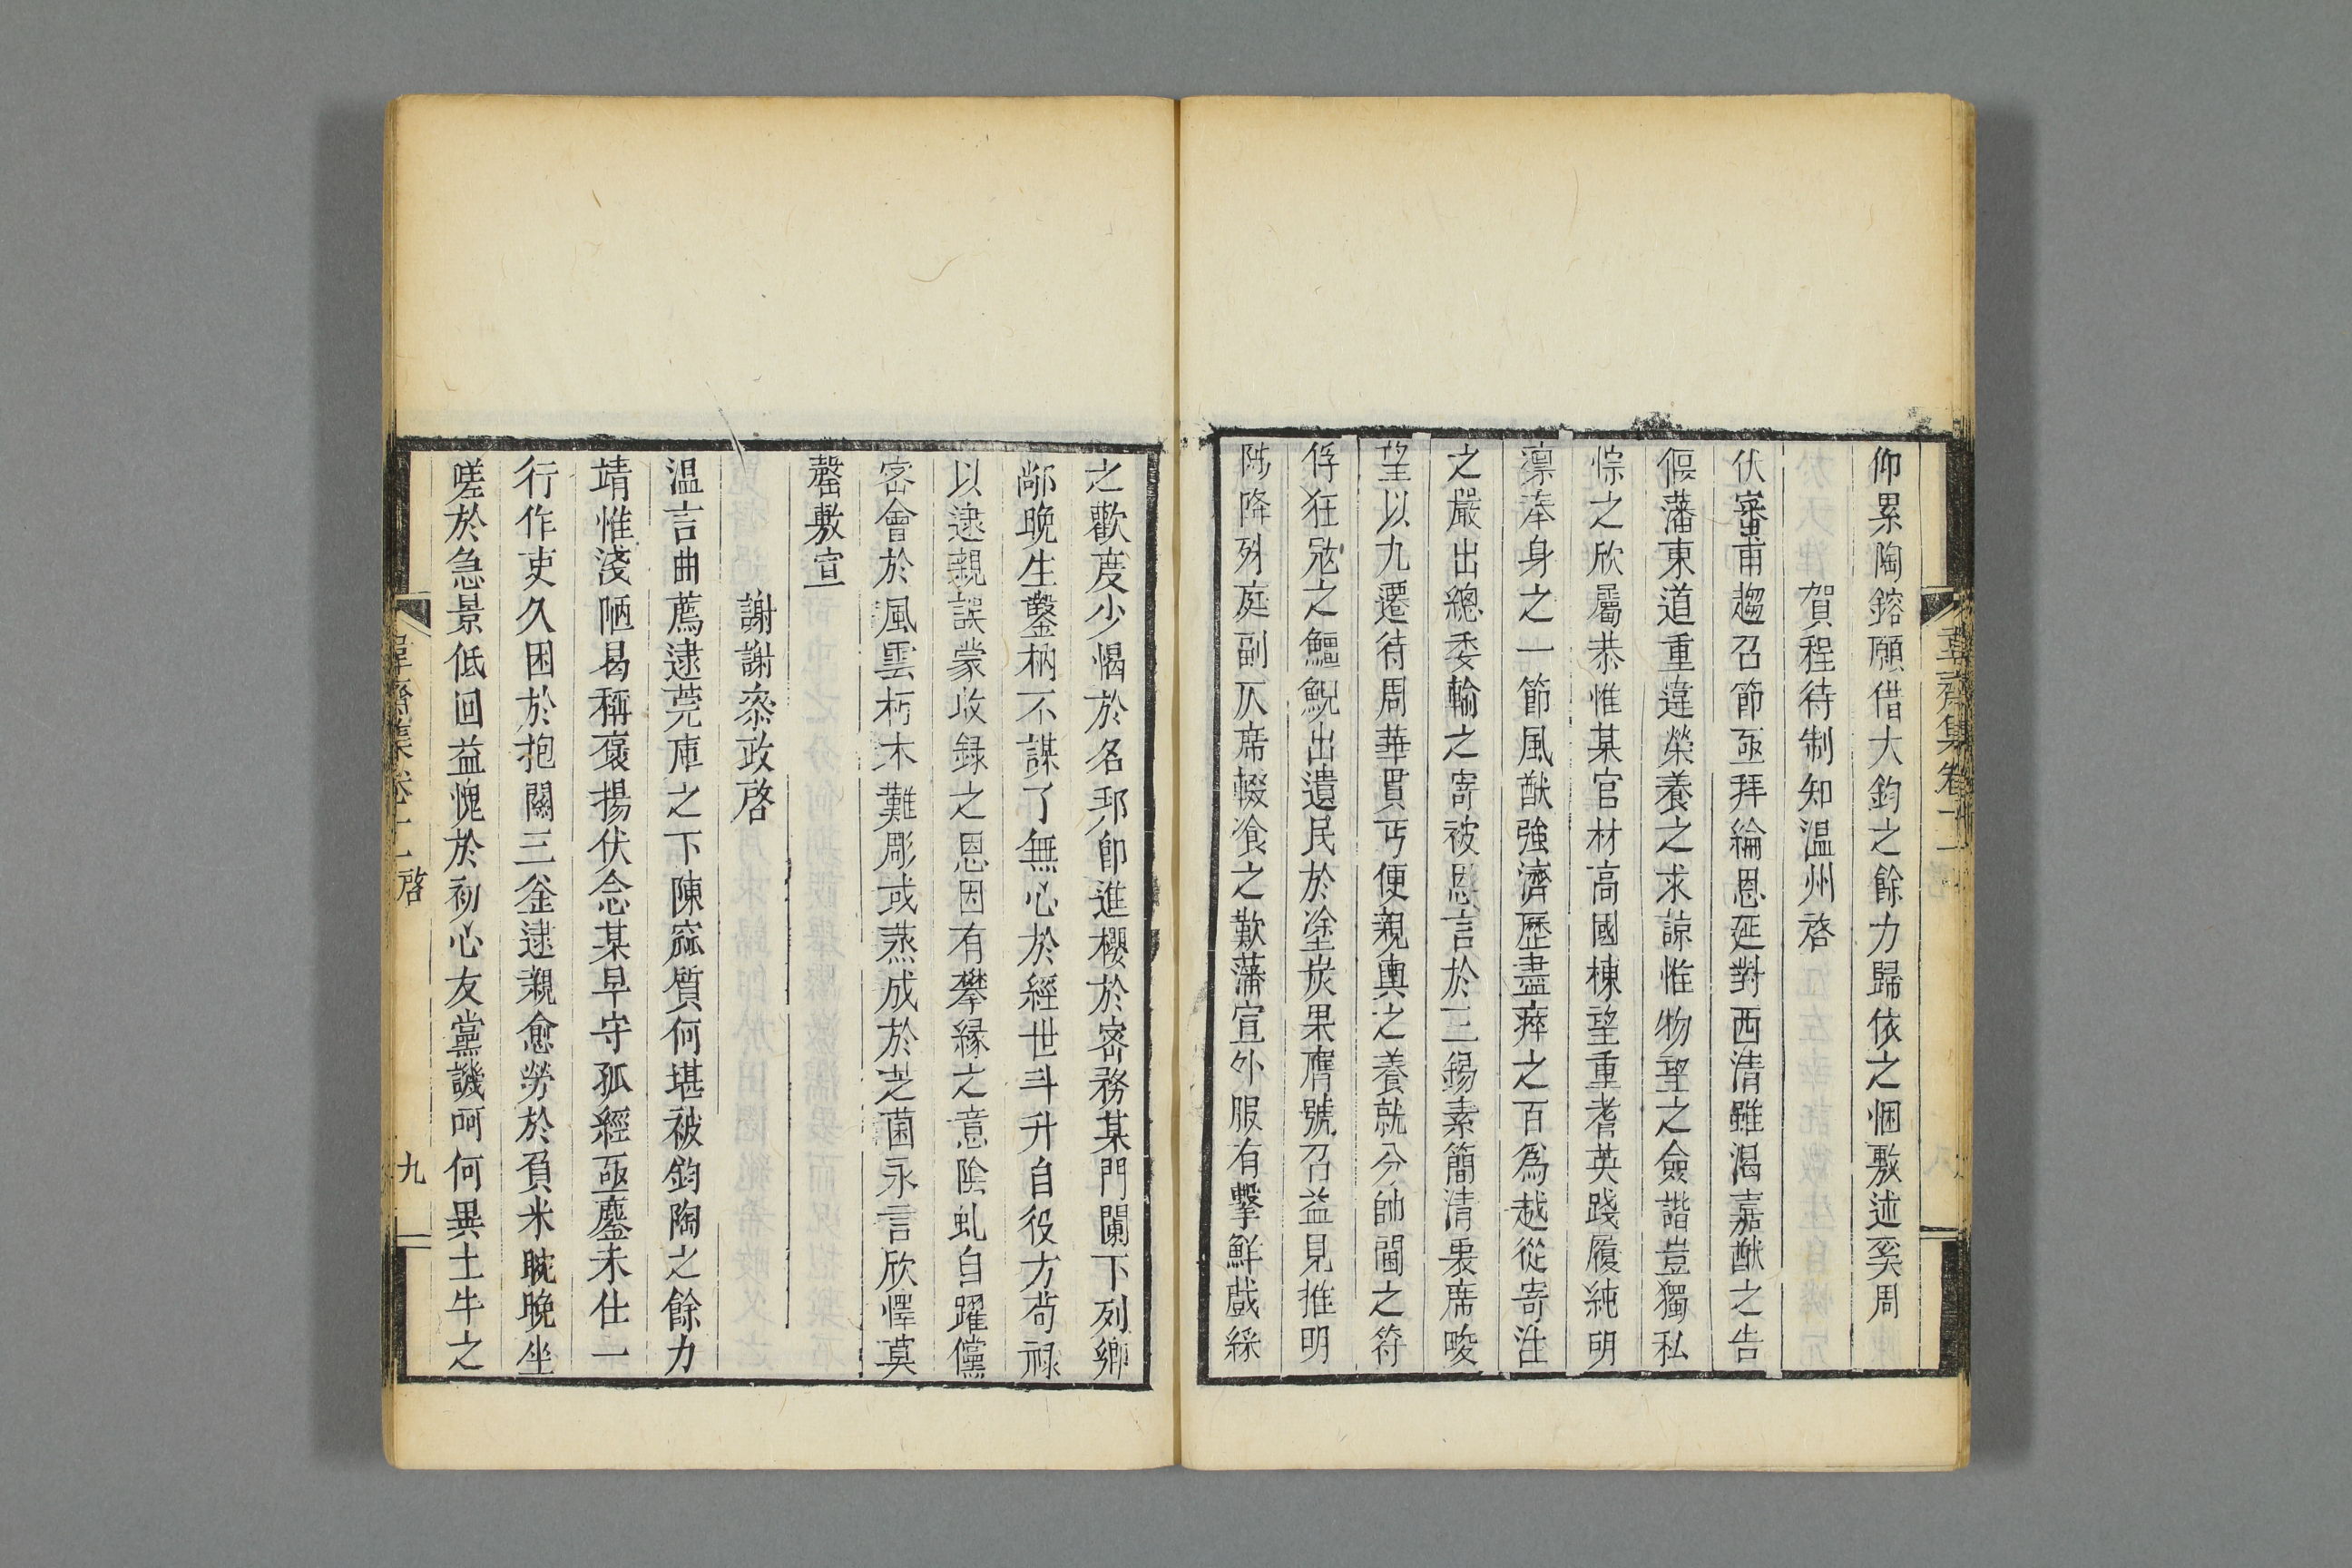 仰累陶鎔願借大鈞之餘力歸依之悃敷述奚周
賀程待制知温州啓
伏審甫趨召節亟拜綸恩延對西清雖渴嘉猷之告
偃藩東道重違榮養之求諒惟物望之僉諧豈獨私
悰之欣屬恭惟某官材高國棟望重耆英踐履純明
稟奉身之一節風猷強濟歷盡瘁之百爲越從寄注
之嚴出總委輸之寄被恩言於三錫素簡清衷席畯
望以九遷待周華貫丐便親輿之養就分帥閫之符
俘狂寇之鱷鯢出遺民於塗炭果膺號召益見推明
陟降列庭副仄席輟飡之歎藩宣外服有擊鮮戲綵
之歡度少愒於名邦即進櫻於密務某門闌下列鄉
鄰晚生鑿枘不謀了無心於經世斗升自役方苟祿
以逮親誤蒙收録之恩因有攀縁之意陰虬自躍儻
密會於風雲朽木難彫或蒸成於芝菌永言欣懌莫
罄敷宣
謝謝叅政啓
温言曲薦逮莞庫之下陳窳質何堪被鈞陶之餘力
靖惟淺陋曷稱褒揚伏念某早守孤經亟塵末仕一
行作吏久困於抱關三釡逮親愈勞於負米晼晚坐
嗟於急景低回益愧於初心友黨譏呵何異土牛之
韋齋集卷十一
啓
九